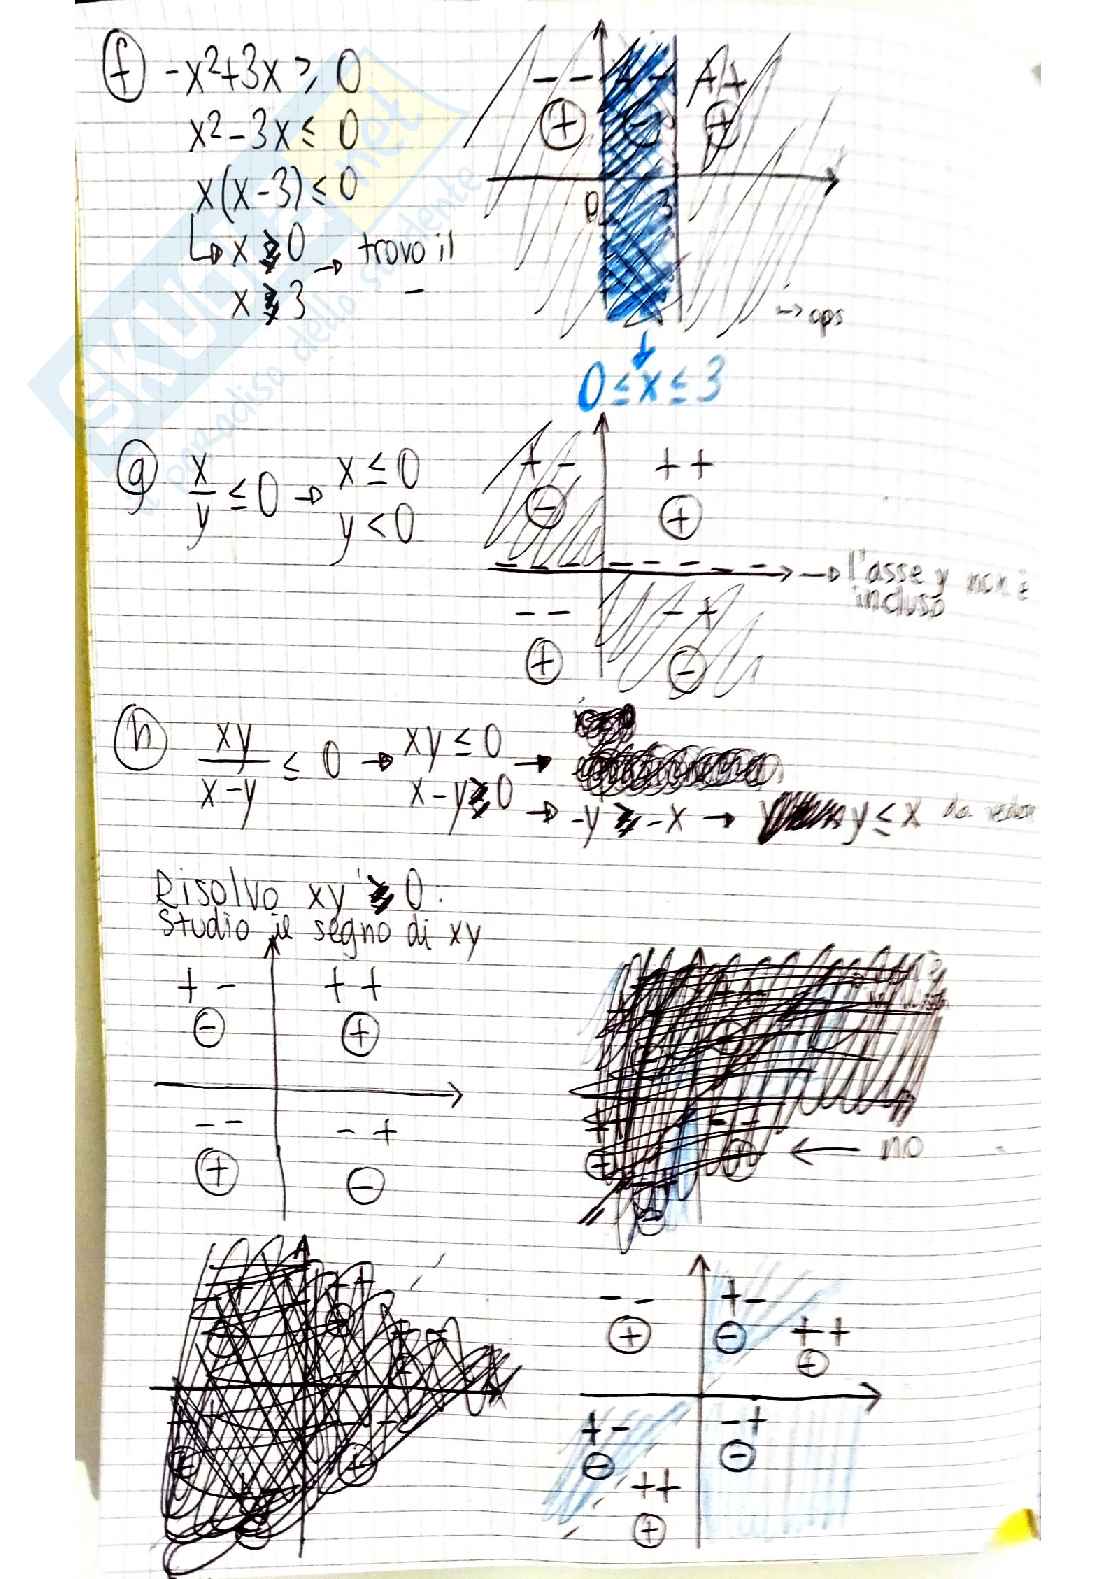 f -x²+3x ≥ 0
x²-3x ≤ 0
x(x-3) ≤ 0
↳ x ≥ 0 → trovo il
x ≥ 3 -
- - + - + +
+ - +
0 3
→ ops
0 ≤ x ≤ 3
g x/y ≤ 0 → x ≤ 0
y < 0
+ - + +
- +
→ l'asse y non è
incluso
- - - +
+ -
h xy/(x-y) ≤ 0 → xy ≤ 0 →
x-y ≥ 0 → -y ≥ -x → y ≤ x da
Risolvo xy ≥ 0:
Studio il segno di xy
+ - + +
- +
- - - +
+ -
← no
- - + -
+ - + +
+
+ - - +
- -
+ +
+
SKUOLA.net
il paradiso dello studente